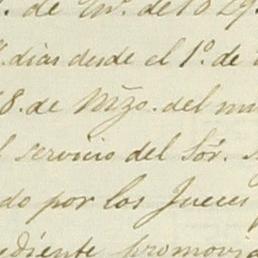 de Mº. de 1829.
días desde el 1º. de
8. de Mzo. del m
servicio del Sór.
do por los Jueces
ediente promovid